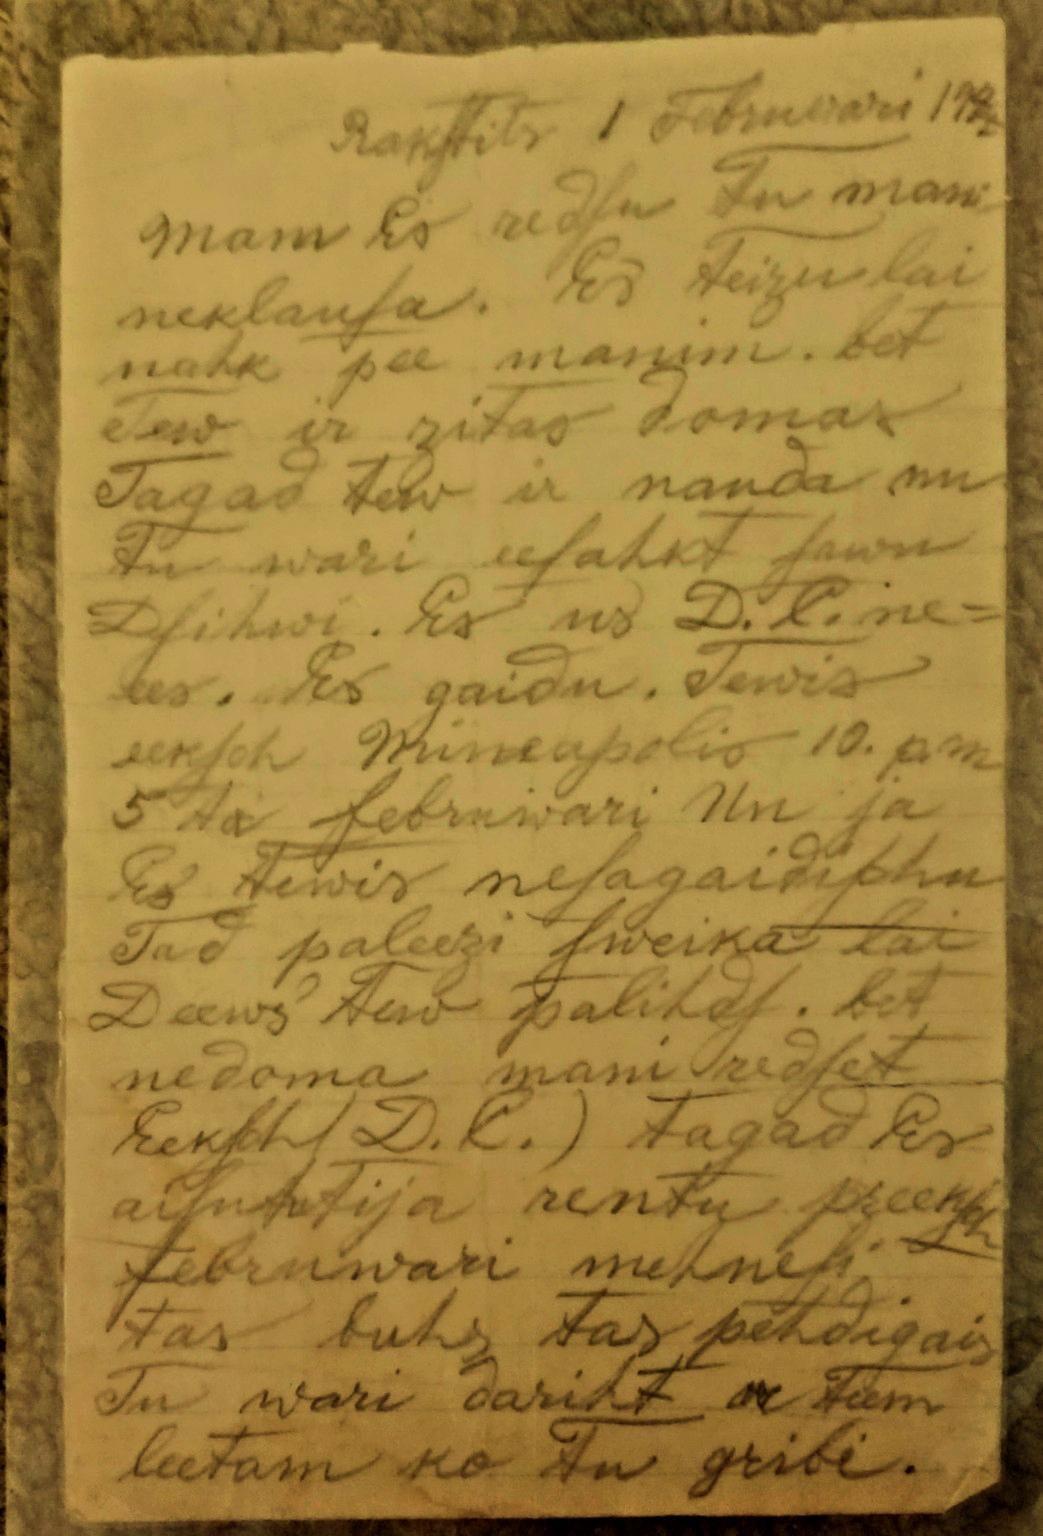 Rakstits 1 Februwari
Mam Es redsu Tu mani
neklausa. Es teizu lai
nahk pee manim. bet
Tew ir zitas domas
Tagad tew ir nauda nu
Tu wari eesahkt sawu
Dsihwi. Es us D. C. ne=
ees. Es gaidu. Tewis
eeksch Mineapolis 10. p m
5 ta februwari Un ja
Es Tewis nesagaidischu
Tad paleezi sweika lai
Deews Tew palihds. bet
nedoma mani redset
Eeksch (D. C.) tagad Es
rentu preeksch
februwari mehnesi
tas buhs tas pehdigais
Tu wari dariht ar tam
leetam ko Tu gribi.